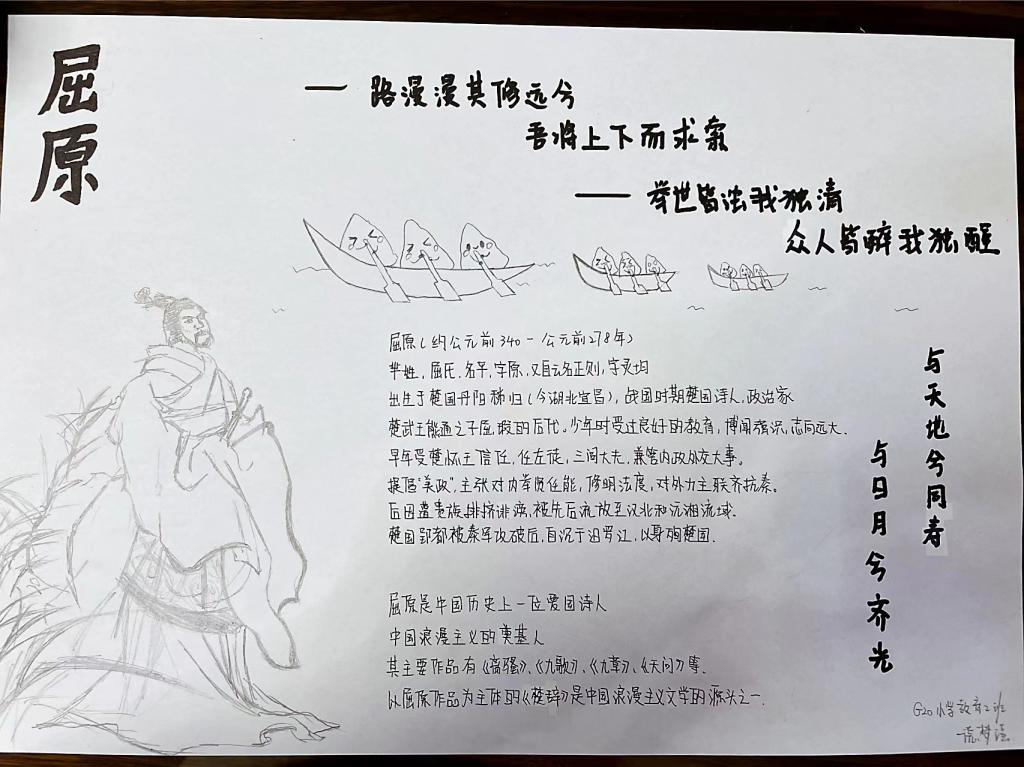 屈原
— 路漫漫其修远兮
吾将上下而求索
— 举世皆浊我独清
众人皆醉我独醒
屈原(约公元前340-公元前278年)
芈姓,屈氏,名平,字原,又自云名正则,字灵均
出生于楚国丹阳秭归(今湖北宜昌),战国时期楚国诗人,政治家
楚武王熊通之子屈瑕的后代。少年时受过良好的教育,博闻强识,志向远大.
早年受楚怀王信任,任左徒,三闾大夫,兼管内政外交大事。
提倡"美政",主张对内举贤任能,修明法度,对外力主联齐抗秦。
后因遭贵族排挤诽谤,被先后流放至汉北和沅湘流域.
楚国郢都被秦军攻破后,自沉于汨罗江,以身殉楚国.
屈原是中国历史上一位爱国诗人
中国浪漫主义的奠基人
其主要作品有《离骚》、《九歌》、《九章》、《天问》等.
以屈原作品为主体的《楚辞》是中国浪漫主义文学的源头之一.
与天地兮同寿
与日月兮齐光
G20小学教育2班
梦